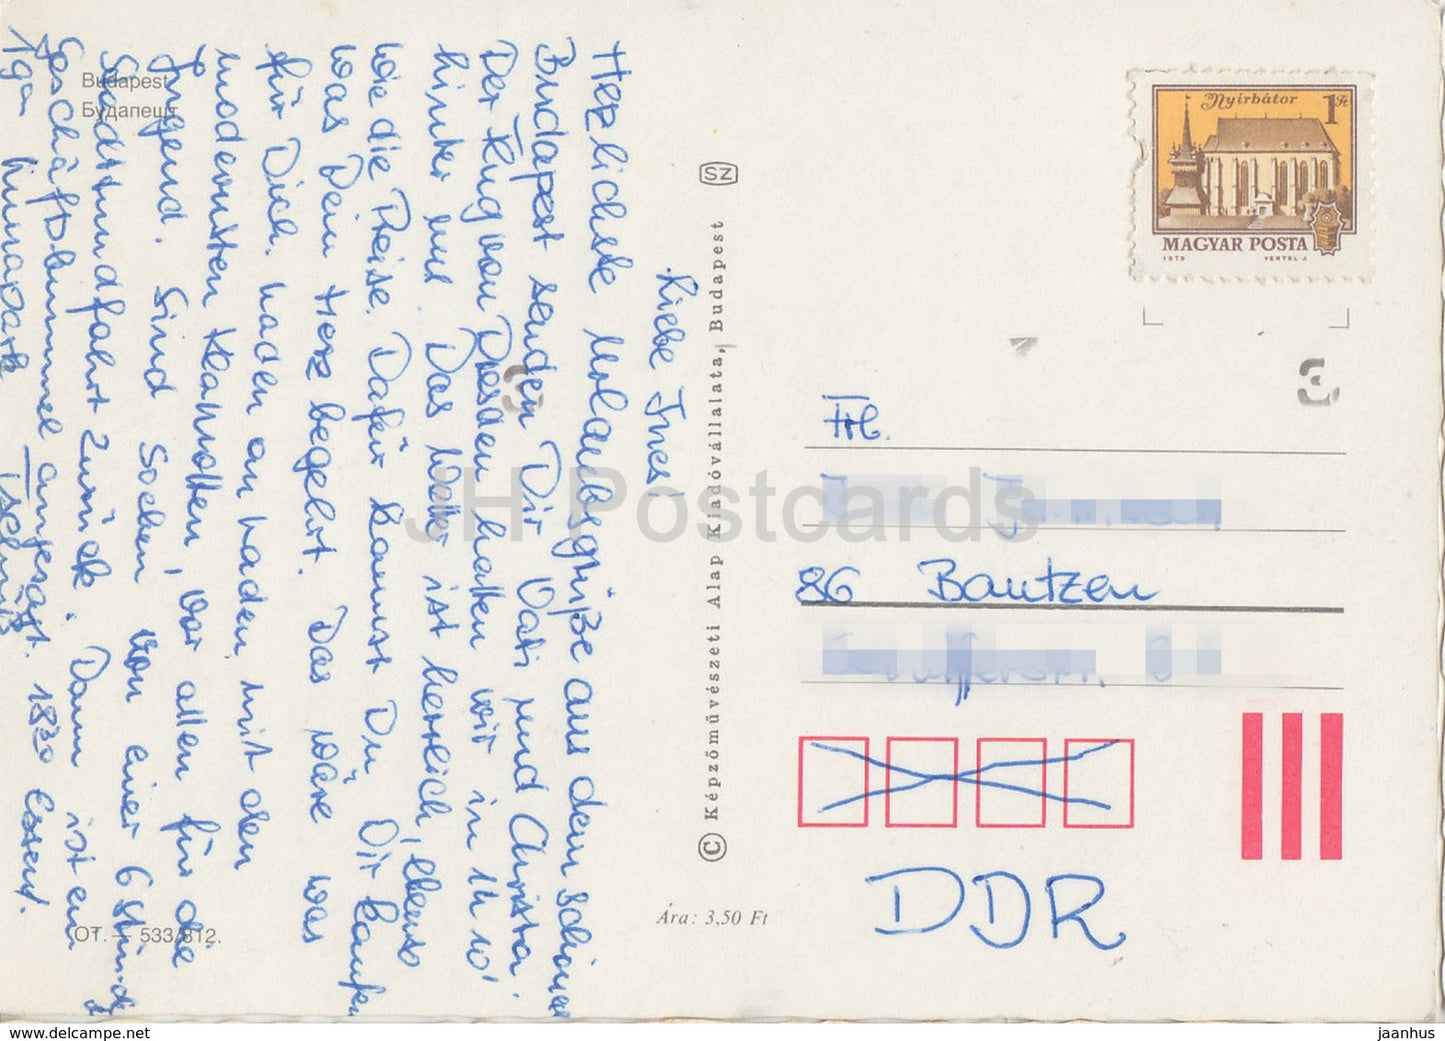 Liebe Ines!
Herzlichste Urlaubsgrüße aus dem schönen
Budapest senden Dir Vati und Christa.
Der Flug von Dresden hatten wir in 1h
hinter uns. Das Wetter ist herrlich, ebenso
wie die Preise. Dafür kannst Du Dir kaufen
was Dein Herz begehrt. Das wäre was
für Dich. Laden an Laden, mit den
modernsten Klamotten, vor allen für die
Jugend. Sind soeben von einer 6 stündg
Stadtrundfahrt zurück. Dann ist ein
Geschäftsbummel angesagt. 18³⁰ Essen.
Budapest
Будапешт
ОТ. — 533/812.
SZ
© Képzőművészeti Alap Kiadóvállalata, Budapest
Ára: 3,50 Ft
Nyírbátor 1 Ft
MAGYAR POSTA
1979 VERTEL J.
Frl.
86 Bautzen
DDR
JH Postcards
www.delcampe.net
jaanhus